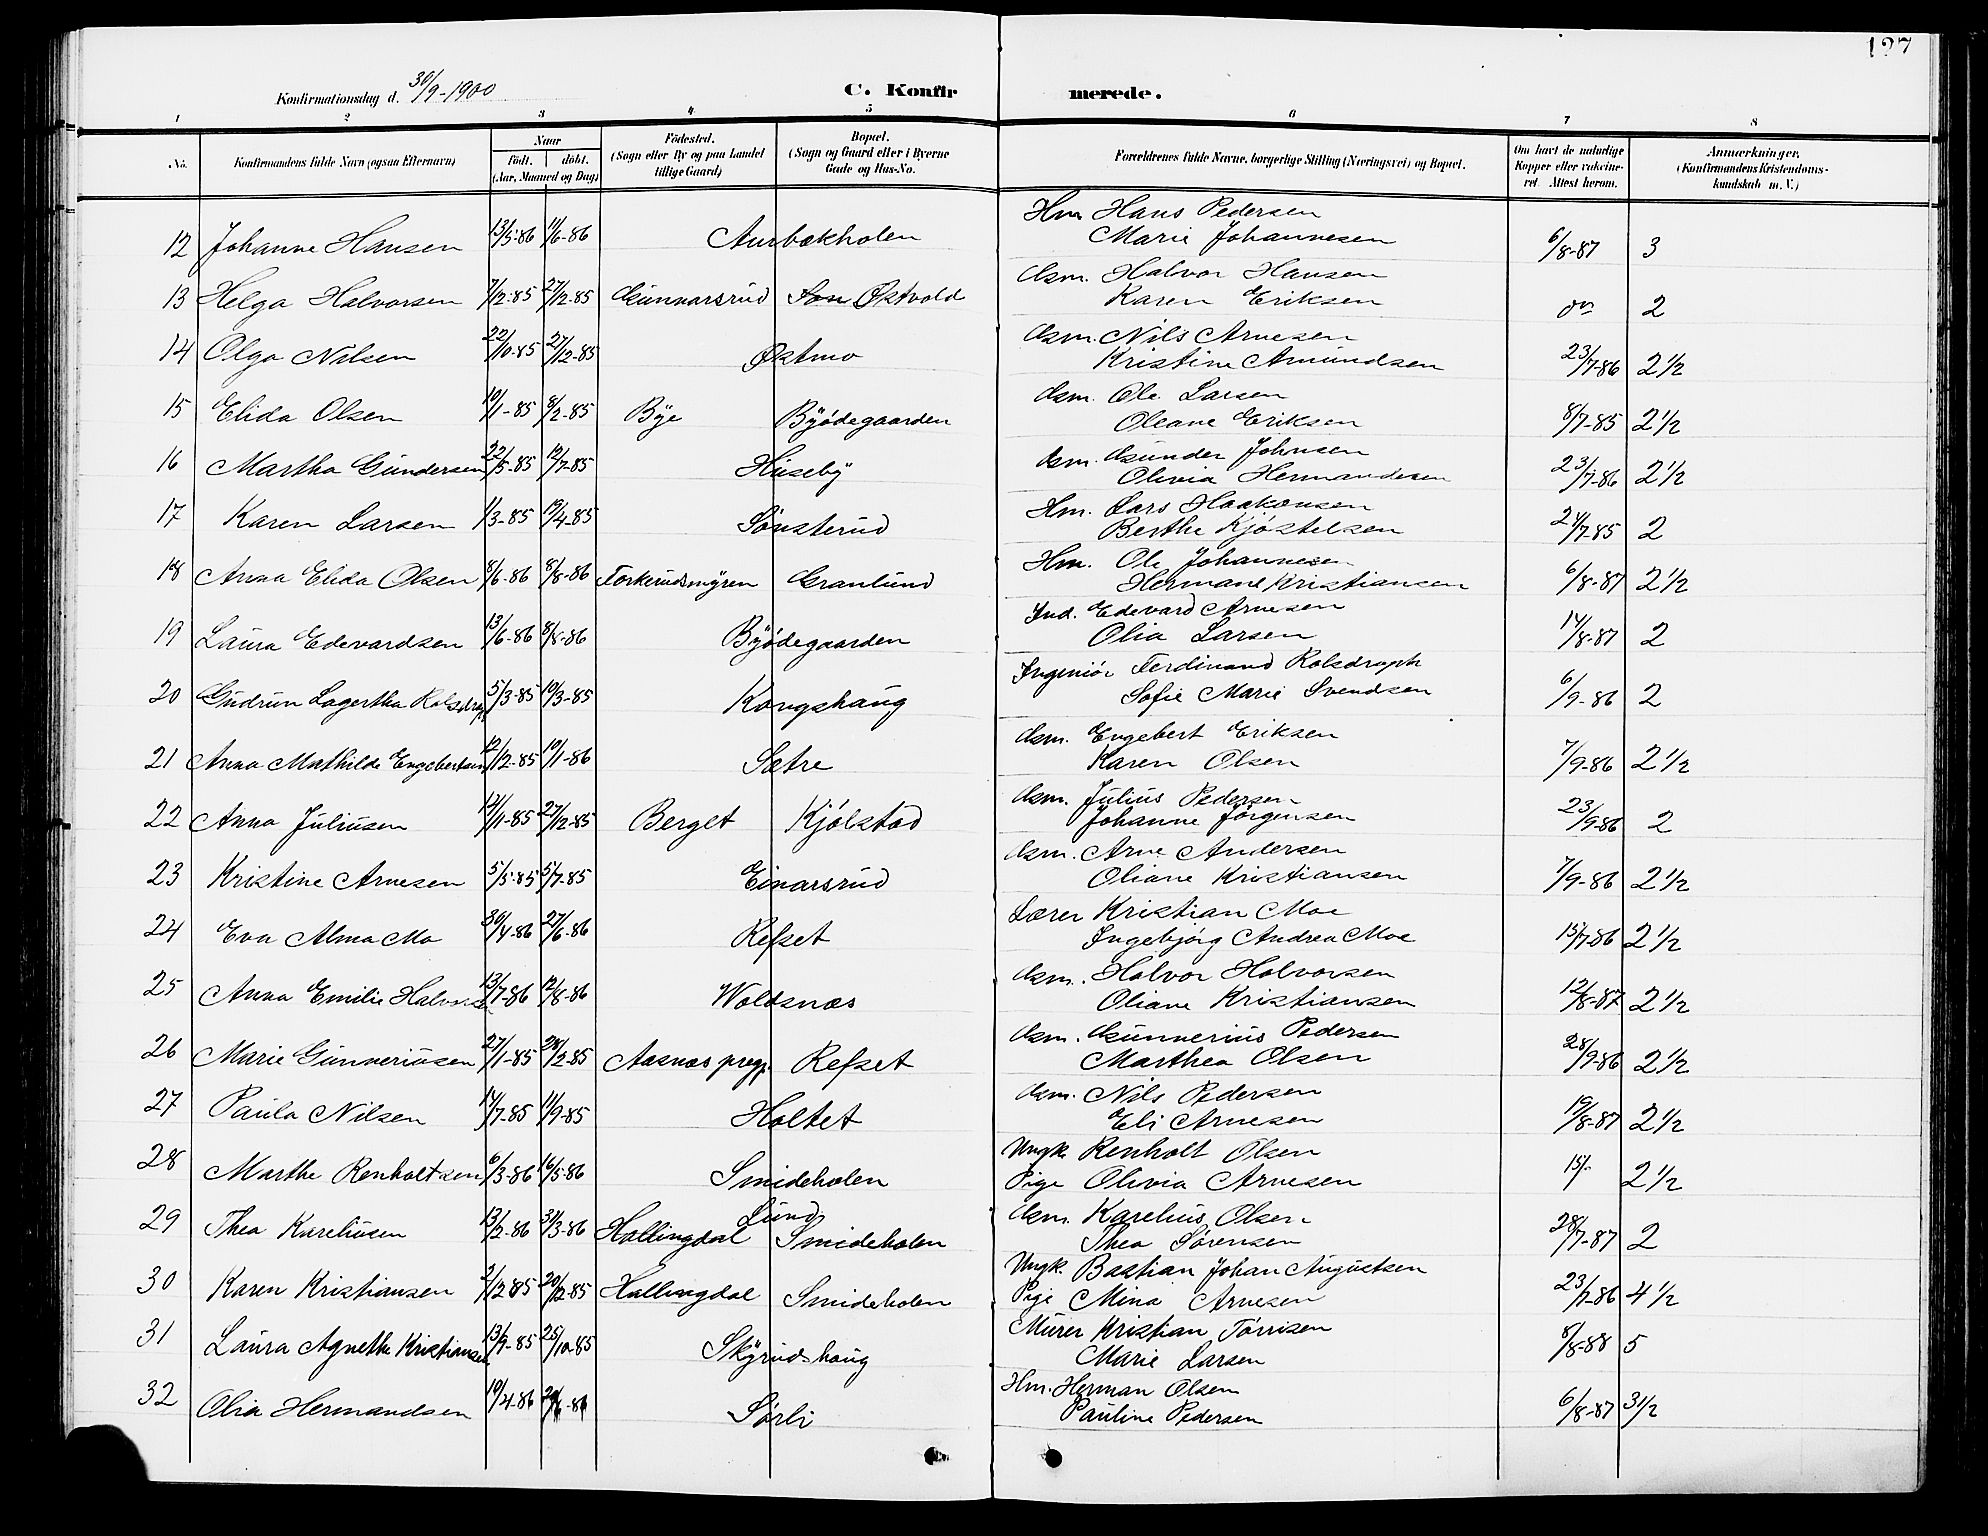 127
Konfirmationsdag d. 30/9-1900
C. Konfirmerede.
1 2 3 4 5 6 7 8
No. Konfirmandens fulde Navn (ogsaa Efternavn) Naar födt. döbt. (Aar, Maaned og Dag) Födested. (Sogn eller By og paa Landet tillige Gaard) Bopæl. (Sogn og Gaard eller i Byerne Gade og Hus-No. Forældrenes fulde Navne, borgerlige Stilling (Næringsvei) og Bopæl. Om havt de naturlige Kopper eller vakcineret. Attest herom. Anmærkninger, (Konfirmandens Kristendomskundskab m. V.)
12 Johanne Hansen 13/5-86 1/6-86 Aurbækholen Hm Hans Pedersen
Marie Johannesen 6/8-87 3
13 Helga Halvorsen 7/12-85 27/12-85 Gunnarsrud Østvold Gsm. Halvor Hansen
Karen Eriksen do 2
14 Olga Nilsen 22/10-85 27/12-85 Østmo Gsm. Nils Arnesen
Kristine Amundsen 23/7-86 2 1/2
15 Elida Olsen 10/1-85 8/2-85 Bye Byödegaarden Gsm. Ole Larsen
Oleane Eriksen 8/7-85 2 1/2
16 Martha Gundersen 22/5-85 12/7-85 Huseby Gsm. Gunder Johnsen
Olivia Hermandsen 23/7-86 2 1/2
17 Karen Larsen 1/3-85 19/4-85 Sönsterud Hm. Lars Haakonsen
Berthe Kjöstelsen 24/7-85 2
18 Anna Elida Olsen 8/6-86 8/8-86 Torkerudsmyren Granlund Hm. Ole Johannesen
Hermane Kristiansen 6/8-87 2 1/2
19 Laura Edevardsen 13/6-86 8/8-86 Byödegaarden Ind. Edevard Arnesen
Olia Larsen 14/8-87 2
20 Gudrun Lagertha Kongshaug 5/3-85 19/3-85 Ingeniör Ferdinand
Sofie Marie Svendsen 6/9-86 2
21 Anna Mathilde Engebertsen 12/12-85 10/1-86 Sætre Gsm. Engebert Eriksen
Karen Olsen 7/9-86 2 1/2
22 Anna Juliusen 12/11-85 27/12-85 Berget Kjölstad Gsm. Julius Pedersen
Johanne Jörgensen 23/9-86 2
23 Kristine Arnesen 5/5-85 5/7-85 Einarsrud Gsm. Arne Andersen
Oliane Kristiansen 7/9-86 2 1/2
24 Eva Alma Mo 30/4-86 27/6-86 Refset Lærer Kristian Moe
Ingebjörg Andrea Moe 15/7-86 2 1/2
25 Anna Emilie Halvorsen 13/7-86 12/8-86 Woldsnæs Gsm. Halvor Halvorsen
Oliane Kristiansen 12/8-87 2 1/2
26 Marie Gunneriusen 27/1-85 28/2-85 Aasnæs prgj. Refset Gsm. Gunnerius Pedersen
Marthea Olsen 28/9-86 2 1/2
27 Paula Nilsen 14/7-85 1/9-85 Holtet Gsm. Nils Pedersen
Eli Arnesen 19/8-87 2 1/2
28 Marthe Renholtsen 6/3-86 16/5-86 Smideholen Ungk. Renholt Olsen
Pige Olivia Arnesen 15/- 2 1/2
29 Thea Kareliusen 13/2-86 31/3-86 Hallingdal Lund Smideholen Gsm. Karelius Olsen
Thea Sörensen 28/7-87 2
30 Karen Kristiansen 2/12 85 20/12-85 Hallingdal Smideholen Ungk. Bastian Johan Augustsen
Pige Mina Arnesen 23/7-86 4 1/2
31 Laura Agnethe Kristiansen 13/9-85 25/10-85 Skyrudshaug Murer Kristian Törrisen
Marie Larsen 8/8-88 5
32 Olia Hermandsen 19/4-86 Sörli Hm. Herman Olsen
Pauline Pedersen 6/8-87 3 1/2